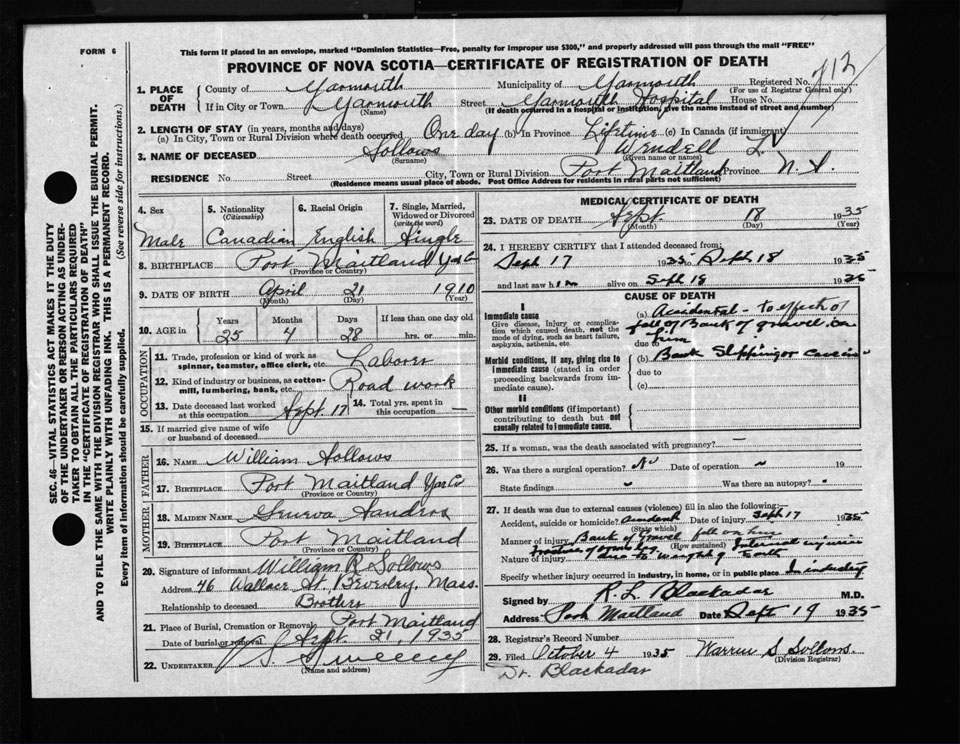 FORM 6
This form if placed in an envelope, marked "Dominion Statistics—Free, penalty for improper use $300," and properly addressed will pass through the mail "FREE"
PROVINCE OF NOVA SCOTIA—CERTIFICATE OF REGISTRATION OF DEATH
SEC. 46—VITAL STATISTICS ACT MAKES IT THE DUTY
OF THE UNDERTAKER OR PERSON ACTING AS UNDER-
TAKER TO OBTAIN ALL THE PARTICULARS REQUIRED
IN THE "CERTIFICATE OF REGISTRATION OF DEATH" AND TO FILE THE SAME WITH THE DIVISION REGISTRAR WHO SHALL ISSUE THE BURIAL PERMIT.
WRITE PLAINLY WITH UNFADING INK. THIS IS A PERMANENT RECORD.
Every item of information should be carefully supplied. (See reverse side for instructions.)
1. PLACE OF DEATH County of Yarmouth Municipality of Yarmouth Registered No. 712
(For use of Registrar General only)
If in City or Town Yarmouth Street Yarmouth Hospital House No.
(Name) (If death occurred in a hospital or institution, give the name instead of street and number)
2. LENGTH OF STAY (in years, months and days)
(a) In City, Town or Rural Division where death occurred One day (b) In Province Lifetime (c) In Canada (if immigrant)
3. NAME OF DECEASED Sollows Wendell L.
(Surname) (Given name or names)
RESIDENCE No. Street City, Town or Rural Division Port Maitland Province N. S.
(Residence means usual place of abode. Post Office Address for residents in rural parts not sufficient)
4. Sex 5. Nationality (Citizenship) 6. Racial Origin 7. Single, Married, Widowed or Divorced (write the word)
Male Canadian English Single
8. BIRTHPLACE Port Maitland Yar Co
(Province or Country)
9. DATE OF BIRTH April 21 1910
(Month) (Day) (Year)
10. AGE in Years Months Days If less than one day old
25 4 28 hrs. or min.
OCCUPATION
11. Trade, profession or kind of work as spinner, teamster, office clerk, etc. Laborer
12. Kind of industry or business, as cotton-mill, lumbering, bank, etc. Road work
13. Date deceased last worked at this occupation Sept. 17 14. Total yrs. spent in this occupation —
15. If married give name of wife or husband of deceased
FATHER
16. NAME William Sollows
17. BIRTHPLACE Port Maitland Yar Co
(Province or Country)
MOTHER
18. MAIDEN NAME Geneva Sanders
19. BIRTHPLACE Port Maitland
(Province or Country)
20. Signature of informant William R Sollows
Address 46 Wallace St. Beverley, Mass.
Relationship to deceased Brother
21. Place of Burial, Cremation or Removal Port Maitland
Date of burial or removal Sept. 21, 1935
22. UNDERTAKER Sweeny
(Name and address)
MEDICAL CERTIFICATE OF DEATH
23. DATE OF DEATH Sept. 18 1935
(Month) (Day) (Year)
24. I HEREBY CERTIFY that I attended deceased from:
Sept 17 1935 to Sept 18 1935
and last saw him alive on Sept 18 1935
CAUSE OF DEATH
I
Immediate cause
Give disease, injury or complication which caused death, not the mode of dying, such as heart failure, asphyxia, asthenia, etc.
(a) Accidental - to effect of
fall of Bank of gravel on
due to him
Morbid conditions, if any, giving rise to immediate cause (stated in order proceeding backwards from immediate cause).
(b) Bank Slipping or caving
due to
(c)
II
Other morbid conditions (if important) contributing to death but not causally related to immediate cause.
25. If a woman, was the death associated with pregnancy? —
26. Was there a surgical operation? No Date of operation 19
State findings Was there an autopsy?
27. If death was due to external causes (violence) fill in also the following:—
Accident, suicide or homicide? Accident Date of injury Sept 17 1935
(State which)
Manner of injury Bank of Gravel fall on him
(How sustained)
Nature of injury Internal injuries due to weight of Earth
Specify whether injury occurred in industry, in home, or in public place In industry
Signed by R. L. Blackadar M.D.
Address Port Maitland Date Sept 19 1935
28. Registrar's Record Number
29. Filed October 4 1935 Warren S Sollows.
(Division Registrar)
Dr. Blackadar